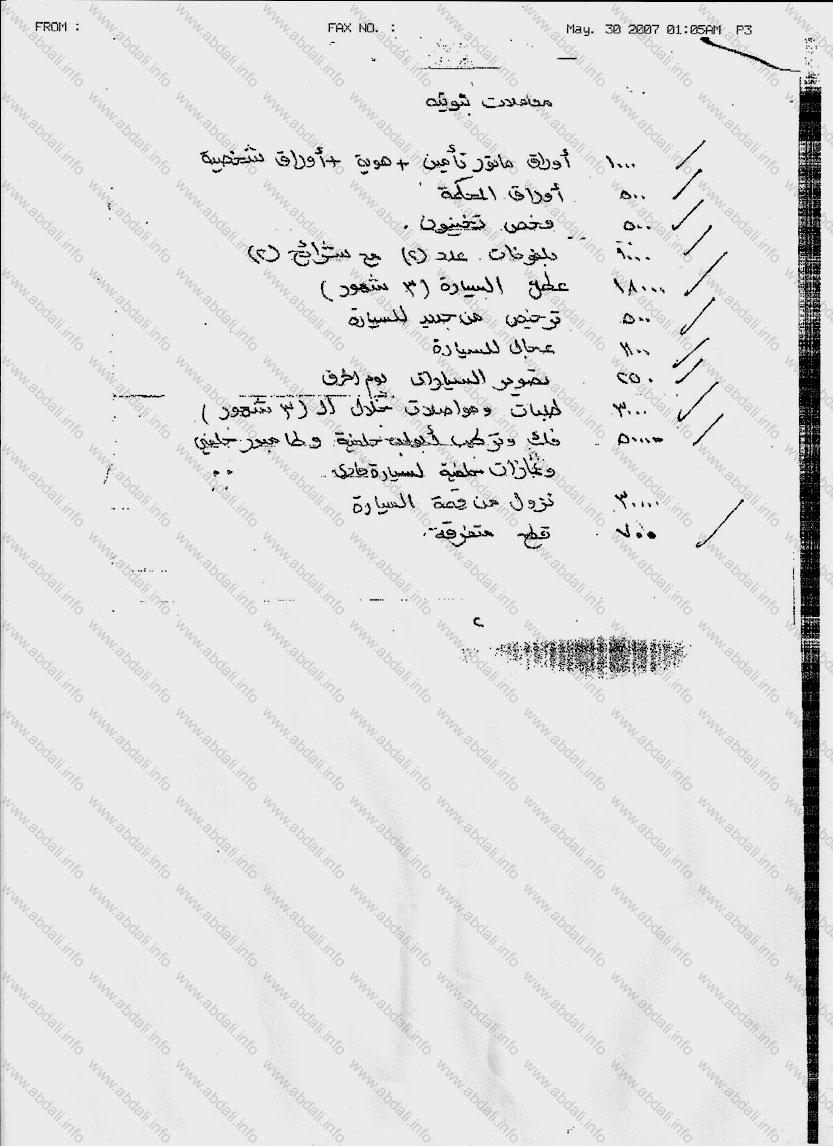 FROM : FAX NO. : May. 30 2007 01:05AM P3
معاملات ثبوتيه
١٠٠٠ أوراق ماتور تأمين + هوية + أوراق شخصية
٥٠٠ أوراق المحكمة
٥٠٠ فحص تلفزيون .
٩٠٠٠ عدد (٢) مع شرائح (٢)
١٨٠٠٠ عطل السيارة (٣ شهور)
٥٠٠ ترخيص من جديد للسيارة
للسيارة
٢٥٠ تصوير السيارات يوم الحرق
٣٠٠٠ طلبات ومواصلات خلال الـ (٣ شهور)
فك وتركيب خلفية
خلفية لسيارة
٣٠٠٠٠ نزول من قيمة السيارة
٧٠٠ قطع متفرقة.
٢
www.abdali.info